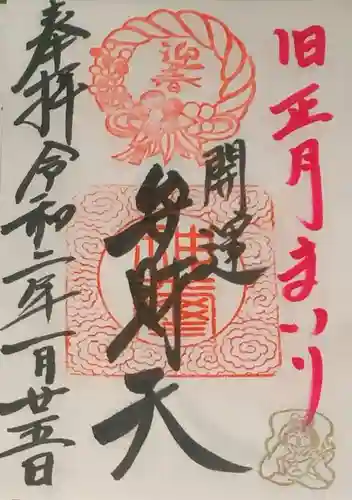 旧正月まいり
迎春
開運
弁財天
奉拝
令和二年一月廿五日